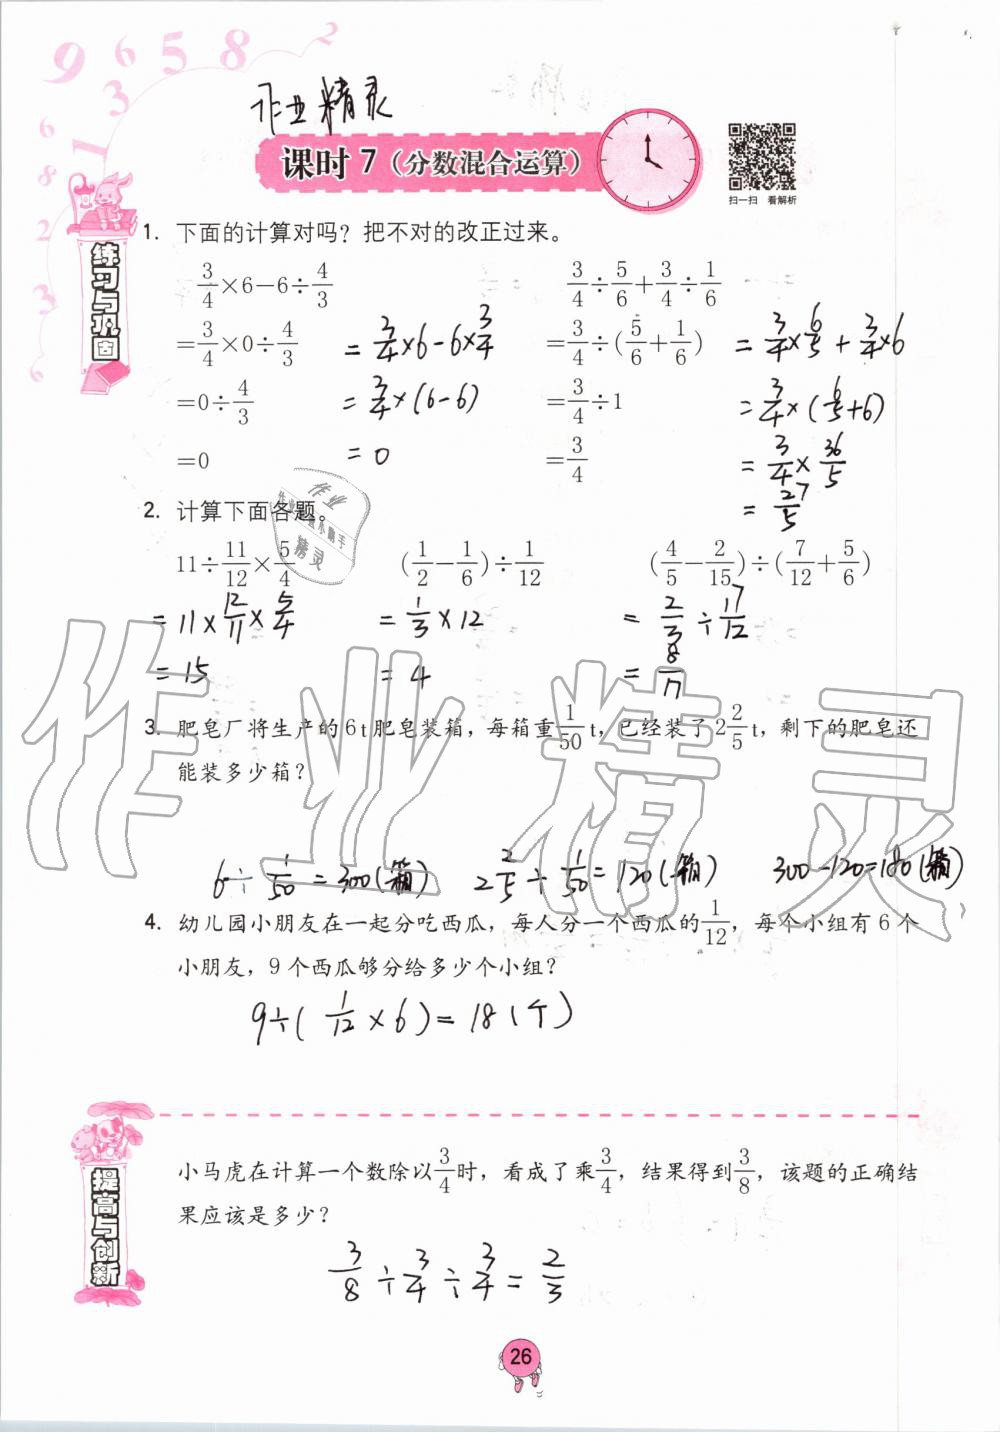 作业精灵
课时7(分数混合运算)
扫一扫 看解析
练习与巩固
1. 下面的计算对吗?把不对的改正过来。
3/4×6-6÷4/3
3/4÷5/6+3/4÷1/6
=3/4×0÷4/3
=3/4×6-6×3/4
=3/4÷(5/6+1/6)
=3/4×6/5+3/4×6
=0÷4/3
=3/4×(6-6)
=3/4÷1
=3/4×(6/5+6)
=0
=0
=3/4
=3/4×36/5
=27/5
2. 计算下面各题。
11÷11/12×5/4
(1/2-1/6)÷1/12
(4/5-2/15)÷(7/12+5/6)
=11×12/11×5/4
=1/3×12
=2/3÷17/12
=15
=4
=8/17
3. 肥皂厂将生产的6t肥皂装箱,每箱重1/50t,已经装了2 2/5t,剩下的肥皂还
能装多少箱?
6÷1/50=300(箱)
2 2/5÷1/50=120(箱)
300-120=180(箱)
4. 幼儿园小朋友在一起分吃西瓜,每人分一个西瓜的1/12,每个小组有6个
小朋友,9个西瓜够分给多少个小组?
9÷(1/12×6)=18(个)
提高与创新
小马虎在计算一个数除以3/4时,看成了乘3/4,结果得到3/8,该题的正确结
果应该是多少?
3/8÷3/4÷3/4=2/3
26
作业精灵